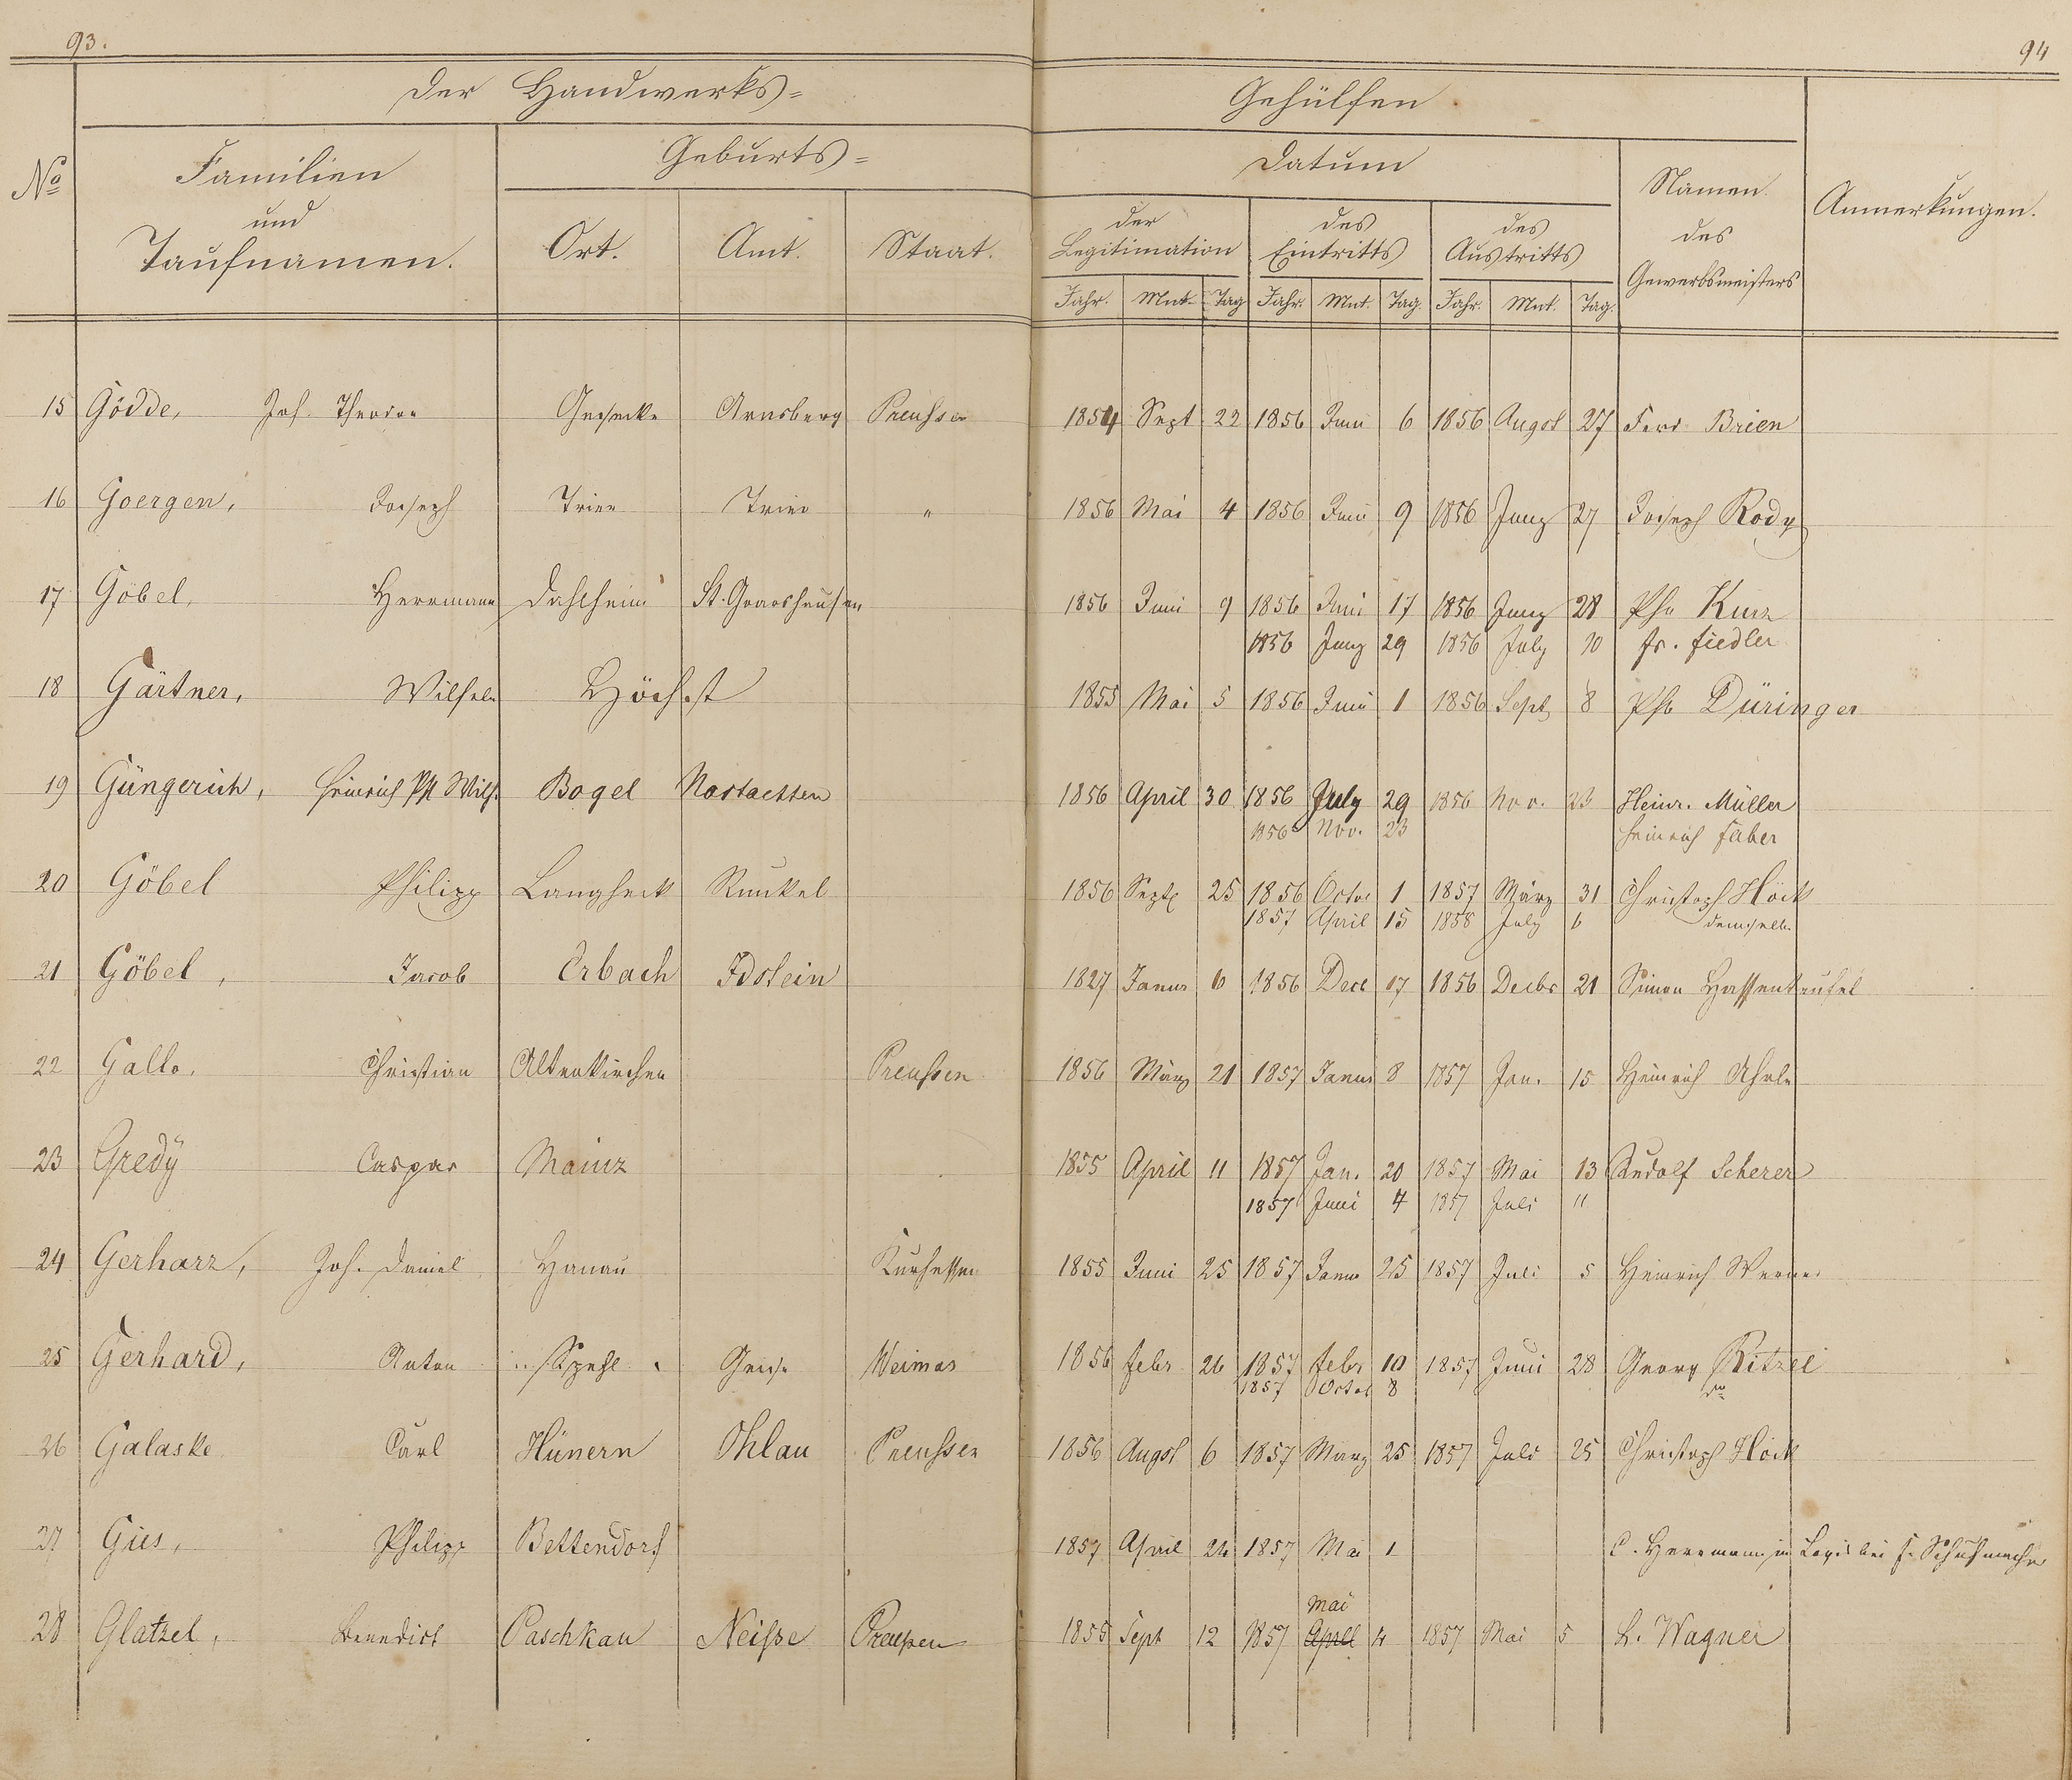 93.
94
Der Handwerks=
Gehülfen.
No
Familien
und
Taufnamen.
Geburts=
Ort.
Amt.
Staat.
Datum
der
Legitimation
des
Eintritts
des
Austritts
Jahr. Mnt. Tag Jahr. Mnt. Tag. Jahr. Mnt. Tag.
Namen
des
Gewerbsmeisters
Anmerkungen.
15 Gödde, Joh. Theodor Gesecke Arnsberg Preussen 1854 Sept 22 1856 Juni 6 1856 Augst 27 Ferd Brien
16 Goergen, Joseph Trier Trier " 1856 Mai 4 1856 Juni 9 1856 Juny 27 Joseph Rody
17 Göbel, Herrmann Dahlheim St. Goarshausen 1856 Juni 9 1856 Juni 17 1856 Juny 28 Phil Kurz
1856 Juny 29 1856 July 10 Fr. Fiedler
18 Gärtner, Wilhelm Höchst 1855 Mai 5 1856 Juni 1 1856 Sept 8 Phil Düringer
19 Güngerich, Heinrich Ph Wilh. Bogel Nastaetten 1856 April 30 1856 July 29 1856 Nov. 23 Heinr. Müller
1856 Nov. 23 Heinrich Faber
20 Göbel Philipp Langheck Runkel 1856 Septr 25 1856 Octor 1 1857 März 31 Christoph Höck
1857 April 15 1858 July 6 demselb.
21 Göbel, Jacob Erbach Idstein 1827 Janur 6 1856 Dece 17 1856 Decbr 21 Simon Hassenteufel
22 Gallo, Christian Altenkirchen Preussen 1856 März 21 1857 Janur 8 1857 Jan. 15 Heinrich
23 Gredÿ Caspar Mainz 1855 April 11 1857 Jan. 20 1857 Mai 13 Rudolf Scherer
1857 Juni 4 1857 Juli 11
24 Gerharz, Joh. Daniel Hanau Kurhessen 1855 Juni 25 1857 Janur 25 1857 Juli 5 Heinrich Werner
25 Gerhard, Anton Geisa Weimar 1856 Febr 26 1857 Febr 10 1857 Juni 28 Georg Ritzel
1857 Octob 8 do
26 Galaske Carl Hünern Ohlau Preussen 1856 Augst 6 1857 März 25 1857 Juli 25 Christoph Höck
27 Gies, Philipp Bettendorf 1857 April 24 1857 Mai 1 C. Herrmann, in Logis bei F. Schuhmacher
Mai
28 Glatzel, Benedict Paschkau Neisse Preussen 1855 Sept 12 1857 April 4 1857 Mai 5 L. Wagner